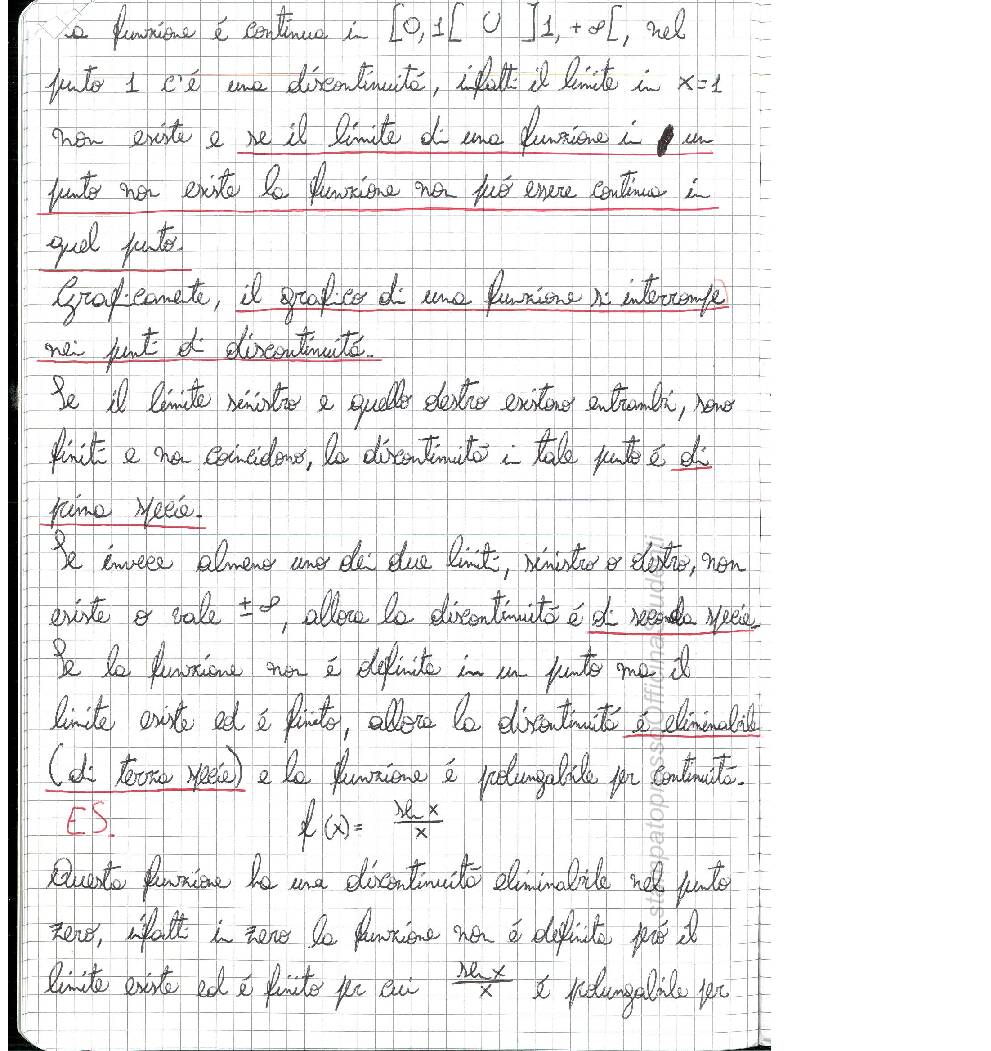 La funzione é continua in [0,1[ U ]1,+∞[, nel
punto 1 c'é una discontinuitá, infatti il limite in x=1
non esiste e se il limite di una funzione in un
punto non esiste la funzione non puó essere continua in
quel punto.
Graficamente, il grafico di una funzione si interrompe
nei punti di discontinuitá.
Se il limite sinistro e quello destro esistono entrambi, sono
finiti e non coincidono, la discontinuitá in tale punto é di
prima specie.
Se invece almeno uno dei due limiti, sinistro o destro, non
esiste o vale ±∞, allora la discontinuitá é di seconda specie.
Se la funzione non é definita in un punto ma il
limite esiste ed é finito, allora la discontinuitá é eliminabile
(di terza specie) e la funzione é prolungabile per continuitá.
ES. f(x)= sen x / x
Questa funzione ha una discontinuitá eliminabile nel punto
zero, infatti in zero la funzione non é definita peró il
limite esiste ed é finito per cui sen x / x é prolungabile per
stampatopressoOfficinaStudenti